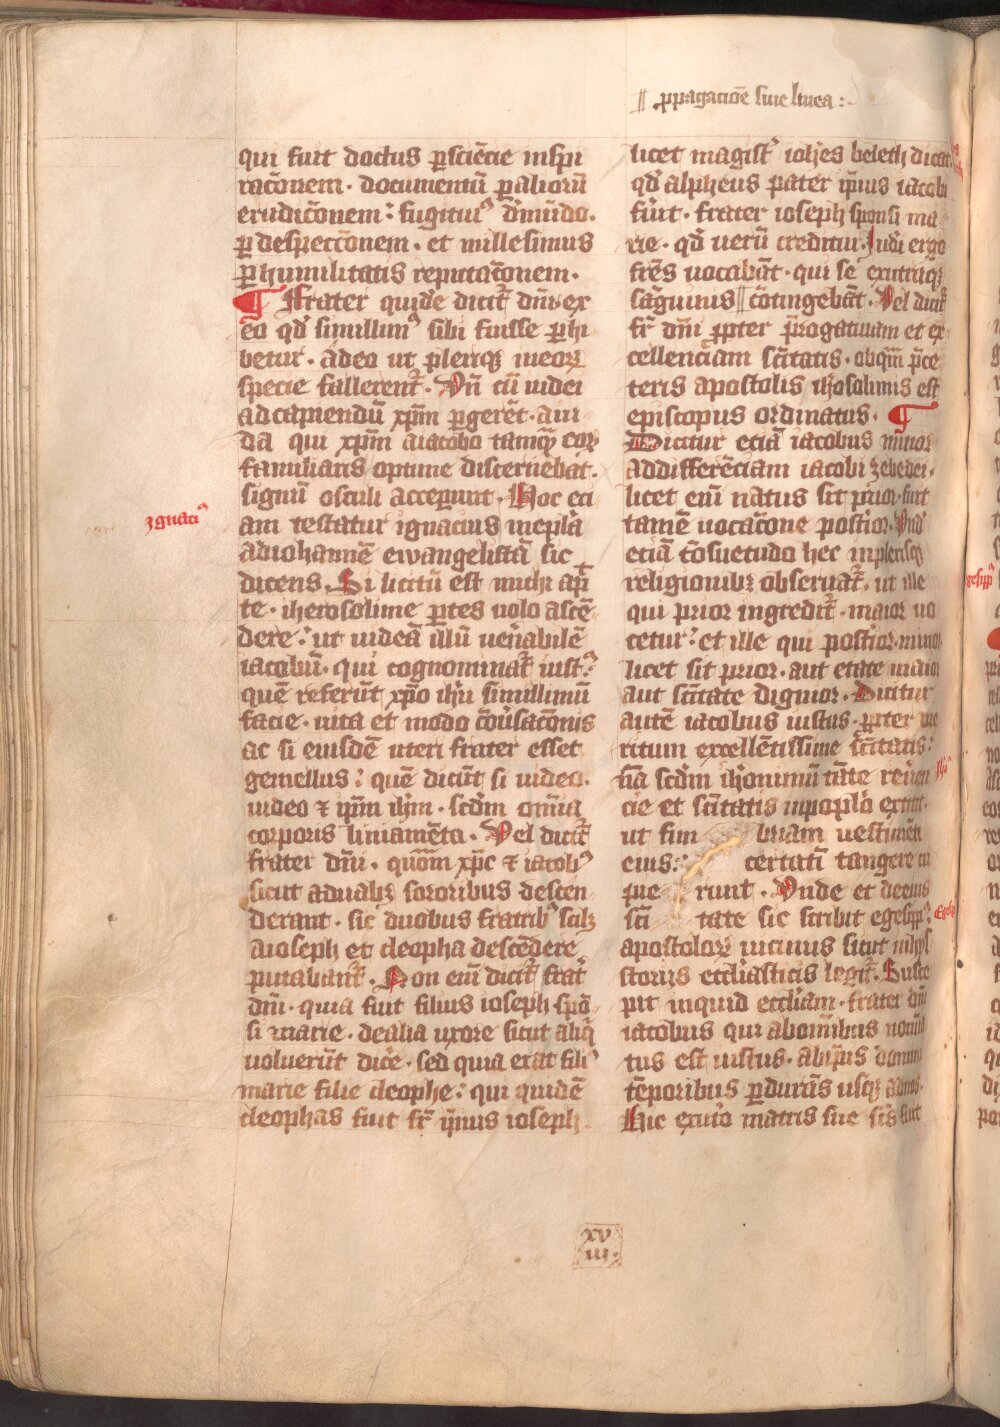 ‖ ꝓpagaciōe siue linea :
qui fuit doctus ꝑ sciēcie inspi
racōnem · documentū ꝑ aliorū
erudicōnem : fugitiuꝰ d̄ mūdo ·
ꝑ despectōnem · et millesimus
ꝑ humilitatis reputacōnem ·
¶ Frater quidē dicit̄ dn̄i ex
eo qd̄ simillimꝰ sibi fuisse ꝑhi
betur · adeo ut pleriqꝫ in eoꝝ
specie fallerent̄ · Vn̄ cū iudei
ad capiendū xp̄m ꝑgerēt · a iu
da qui xp̄m a iacobo tamqꝫ eoꝝ
familiaris optime discernebat ·
signū osculi acceperunt · Hoc eci
am testatur ignacius in ep̄la
ad iohannē ewangelistā sic
dicens · Si licitū est michi ap̄
te · iherosolime ꝑtes uolo ascē
dere : ut uideā illū uen̄abilē
iacobū · qui cognominat̄ iustꝰ
quē referūt xp̄o ih̄u simillimū
facie · uita et modo cōūsacōnis
ac si eiusdē uteri frater esset
gemellus : quē dicūt si uideo ·
uideo ⁊ ip̄m ih̄m · scd̄m om̄ia
corporis liniamēta · Vel dicit̄
frater dn̄i · quōm xp̄c ⁊ iacobꝰ
sicut a duabꝫ sororibus descen
derant · sic duobus fratribꝰ scilꝫ
a ioseph et cleopha descēdere
putabant̄ · Non eni dicit̄ frat̄
dn̄i · quia fuit filius ioseph spō
si marie · de alia uxore sicut aliq̄
uoluerūt dic̄e · sed quia erat filiꝰ
marie filie cleophe : qui quidē
cleophas fuit fr̄ ip̄ius ioseph
licet magist̄ ioh̄es beleth dicat
qd̄ alpheus pater ip̄ius iacobi
fuit · frater ioseph sponsi ma
rie · qd̄ uerū creditur · Iudei ergo
fr̄es uocabāt · qui se ex utroqꝫ
sāguinis ‖ cōtingebāt · Vel dicit̄
fr̄ dn̄i ꝓpter p̄rogatiuam et ex
cellenciam sc̄itatis · ob quā p̄ce
teris apostolis ih̄osolimis est
episcopus ordinatus · ¶
Dicitur eciā iacobus minor
ad differēciam iacobi zebedei ·
licet eni natus sit prior · fuit
tamē uocacōne post̄ior · Vnd̄
eciā cōsuetudo hec in plerisqꝫ
religionibꝫ obseruat̄ · ut ille
qui prior ingredit̄ · maior uo
cetur : et ille qui post̄ior · minor
licet sit prior · aut etate maior
aut sc̄itate dignior · Dicitur
autē iacobus iustus · ꝓpter me
ritum excellētissime sc̄itatis :
n̄a scd̄m ih̄onimū tāte reuen
cie et sc̄itatis in pop̄lo extitit ·
ut fim briam uestimēti
eius : certatī tangere cu
pie runt · Vnde et de eius
sc̄i tate sic scribit egesippꝰ :
apostoloꝝ uicinus sicut in hys
storiis eccl̄iasticis legit̄ · Susce
pit inquid eccl̄iam · frater dn̄i
iacobus qui ab om̄ibus nomīa
tus est iustus · ab ip̄ius domini
tēporibus ꝑdurās usqꝫ ad nos ·
Hic ex ut̄o matris sue sc̄s fuit
Ignaciꝰ
Egesip
xv
iii ·